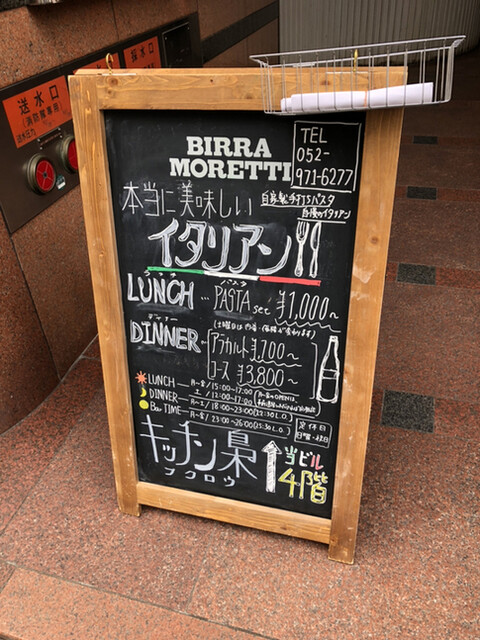 送水口
BIRRA
MORETTI
TEL
052-
971-6277
本当に美味しい
自家製手打ちパスタ
自慢のイタリアン
イタリアン
ランチ
LUNCH … パスタ PASTA set ¥1,000~
(土曜日は内容・価格が変わります)
ディナー
DINNER
アラカルト ¥700~
コース ¥3,800~
LUNCH 月~金/15:00~17:00
土/12:00~17:00
DINNER 月~土/18:00~23:00(22:30L.O.)
Bar TIME 月~金/23:00~26:00(25:30L.O.)
定休日
日曜・祝日
キッチン梟
フクロウ
↑当ビル
4階